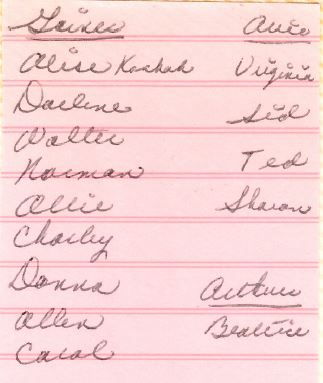 Alise Virginia
Darlene Sid
Walter
Norman Ted
Allie Sharon
Charley
Donna Arthur
Allen Beatrice
Carol